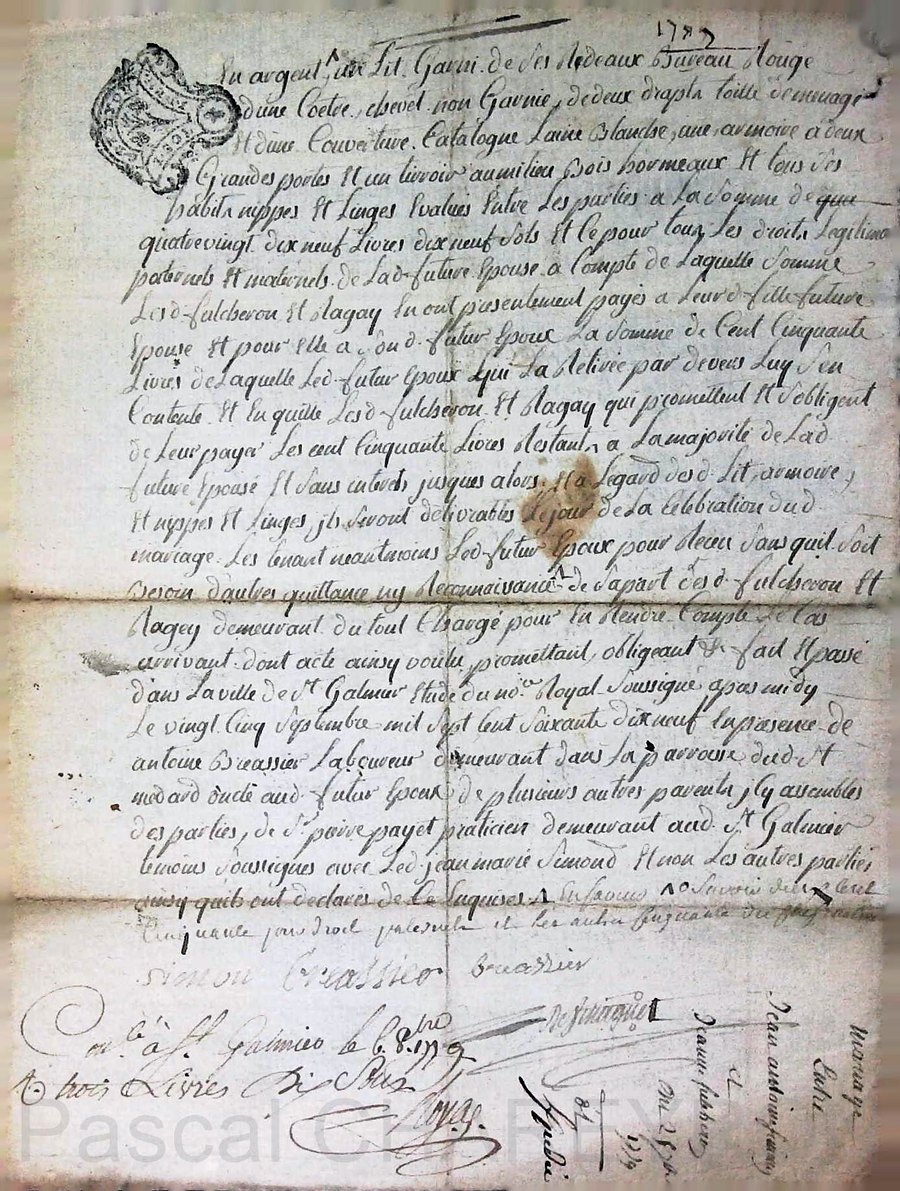 En argent, un Lit Garni de Ses Rideaux Bureau Rouge
dune Coetre, chevet non Garnie, de deux draps toille de menage
Et dune Couverture Catalogne Laine Blanche, une armoire a deux
Grandes portes Et un tirroir au milieu Bois hormeaux Et tous Ses
habits nippes Et Linges Evalués Entre Les parties a La Somme de
quatrevingt dix neuf Livres dix neuf Sols Et Ce pour tous Les droits Legitime
paternels Et maternels de Lad. future Epouse a Compte de Laquelle Somme
Lesd. fulcheron Et Ragay En ont presentement payés a Leurd. fille future
Epouse Et pour Elle a Sond. futur Epoux La Somme de Cent Cinquante
Livres de Laquelle Led. futur Epoux qui La Retirée par devers Luy S'en
Contente Et En quitte Lesd. fulcheron Et Ragay qui promettent Et S'obligent
de Leur payer Les cent Cinquante Livres Restants a La majorité de Lad.
future Epouse Et Sans interets jusques alors, Et a Legard desd. Lit, armoire,
Et nippes Et Linges, ils Seront delivrables Le jour de La Celebration dud.
mariage Les tenant neantmoins Led. futur Epoux pour Receu Sans quil Soit
Besoin d'autres quittance ny Reconnaissance de Sa part desd. fulcheron Et
Ragey demeurant du tout Chargé pour En Rendre Compte Le Cas
arrivant dont acte ainsy voulu, promettant, obligeant &. fait Et passé
dans La ville de St Galmier Etude du no.re Royal Soussigné apres midy
Le vingt Cinq Septembre mil Sept Cent Soixante dix neuf En presence de
antoine Breassier Laboureur demeurant dans La parroisse dud. St
medard oncle aud. futur Epoux de plusieurs autres parents, j'ly assemblés
des parties, de Sr. pierre payet praticien demeurant aud. St Galmier
temoins Soussignés avec Led. jean marie Simond Et non Les autres parties
ainsy quils ont declarés de Ce Enquises
Cinquante pour droit paternels et les autres Cinquante
Simon Breassier breassier
à St. Galmier le 6. 8.bre 1779
trois Livres Dix Sous
mariage
Entre
Jean
et
Jeanne
1779
Expedié
Pascal